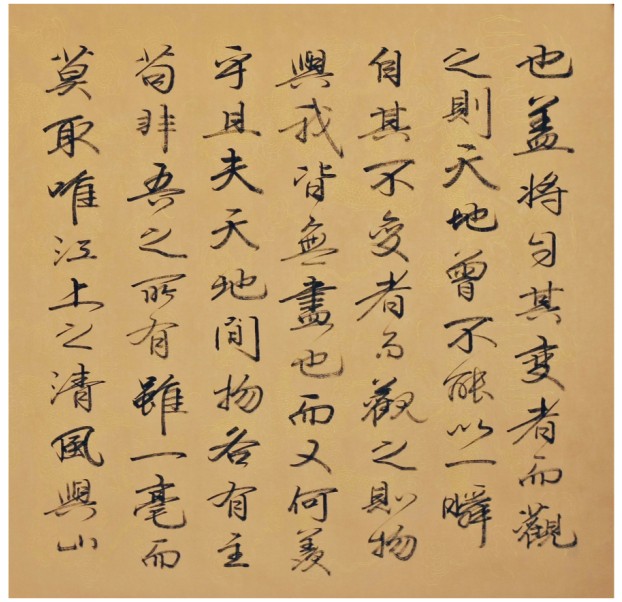 也蓋將自其變者而觀
之則天地曾不能以一瞬
自其不变者而觀之則物
與我皆無盡也而又何羡
乎且夫天地間物各有主
苟非吾之所有雖一毫而
莫取唯江上之清風與山